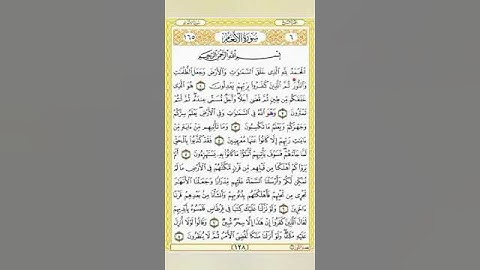 ٦ سُورَةُ الأَنْعَامِ ١٦٥
بِسْمِ اللَّهِ الرَّحْمَٰنِ الرَّحِيمِ
الْحَمْدُ لِلَّهِ الَّذِي خَلَقَ السَّمَٰوَٰتِ وَالْأَرْضَ وَجَعَلَ الظُّلُمَٰتِ
وَالنُّورَ ثُمَّ الَّذِينَ كَفَرُوا بِرَبِّهِمْ يَعْدِلُونَ ١ هُوَ الَّذِي
خَلَقَكُم مِّن طِينٍ ثُمَّ قَضَىٰ أَجَلًا وَأَجَلٌ مُّسَمًّى عِندَهُ ثُمَّ أَنتُمْ
تَمْتَرُونَ ٢ وَهُوَ اللَّهُ فِي السَّمَٰوَٰتِ وَفِي الْأَرْضِ يَعْلَمُ سِرَّكُمْ
وَجَهْرَكُمْ وَيَعْلَمُ مَا تَكْسِبُونَ ٣ وَمَا تَأْتِيهِم مِّنْ ءَايَةٍ مِّنْ
ءَايَٰتِ رَبِّهِمْ إِلَّا كَانُوا عَنْهَا مُعْرِضِينَ ٤ فَقَدْ كَذَّبُوا بِالْحَقِّ
لَمَّا جَاءَهُمْ فَسَوْفَ يَأْتِيهِمْ أَنبَٰؤُا مَا كَانُوا بِهِ يَسْتَهْزِءُونَ ٥ أَلَمْ
يَرَوْا كَمْ أَهْلَكْنَا مِن قَبْلِهِم مِّن قَرْنٍ مَّكَّنَّٰهُمْ فِي الْأَرْضِ مَا لَمْ
نُمَكِّن لَّكُمْ وَأَرْسَلْنَا السَّمَاءَ عَلَيْهِم مِّدْرَارًا وَجَعَلْنَا الْأَنْهَٰرَ
تَجْرِي مِن تَحْتِهِمْ فَأَهْلَكْنَٰهُم بِذُنُوبِهِمْ وَأَنشَأْنَا مِن بَعْدِهِمْ قَرْنًا
ءَاخَرِينَ ٦ وَلَوْ نَزَّلْنَا عَلَيْكَ كِتَٰبًا فِي قِرْطَاسٍ فَلَمَسُوهُ بِأَيْدِيهِمْ
لَقَالَ الَّذِينَ كَفَرُوا إِنْ هَٰذَا إِلَّا سِحْرٌ مُّبِينٌ ٧ وَقَالُوا لَوْلَا أُنزِلَ
عَلَيْهِ مَلَكٌ وَلَوْ أَنزَلْنَا مَلَكًا لَّقُضِيَ الْأَمْرُ ثُمَّ لَا يُنظَرُونَ ٨
١٢٨